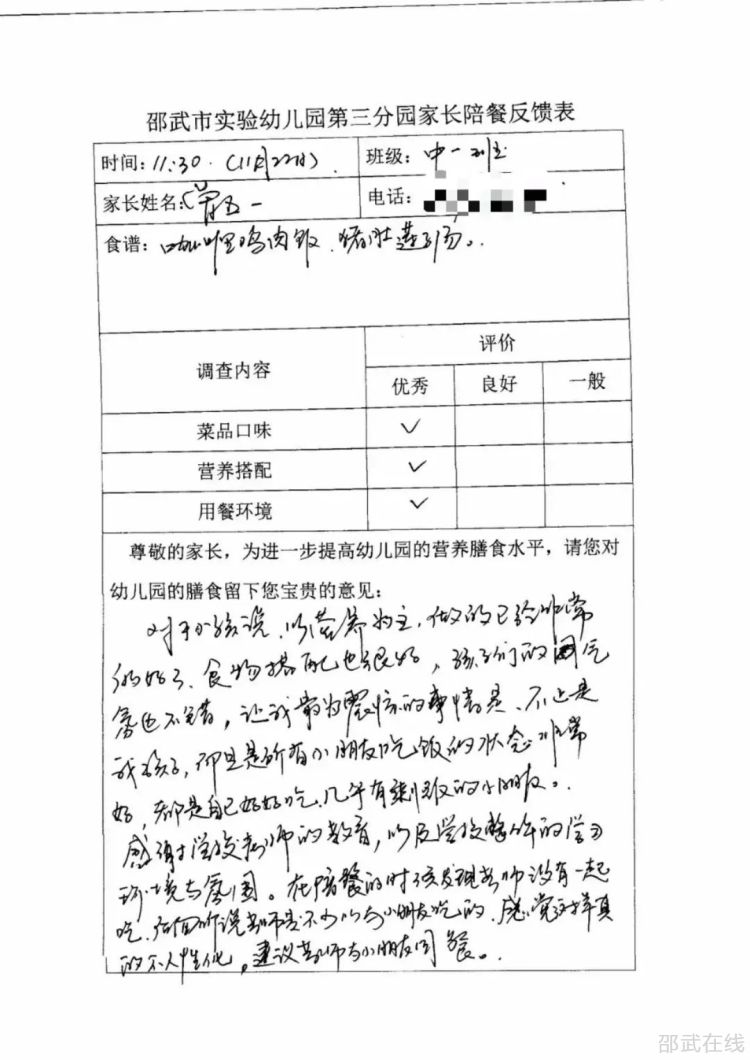 邵武市实验幼儿园第三分园家长陪餐反馈表
时间：11:30 (11月22日) 班级：中一班
家长姓名： 电话：
食谱：咖喱鸡肉饭、猪肚莲子汤。
调查内容 评价
优秀 良好 一般
菜品口味 ✓
营养搭配 ✓
用餐环境 ✓
尊敬的家长，为进一步提高幼儿园的营养膳食水平，请您对
幼儿园的膳食留下您宝贵的意见：
对于小孩说，以营养为主，做的已经非常
的好了、食物搭配也很好，孩子们的氛
也不错，让我最为震惊的事情是、不止是
我孩子，而且是所有小朋友吃饭的状态非常
好，都是自己好好吃、几乎有剩饭的小朋友。
感谢学校老师的教育，以及学校整体的学习
环境与氛围。在陪餐的时候发现老师没有一起
吃、听说老师是不可以与小朋友吃的，感觉这样真
的不人性化，建议老师与小朋友同餐。
邵武在线